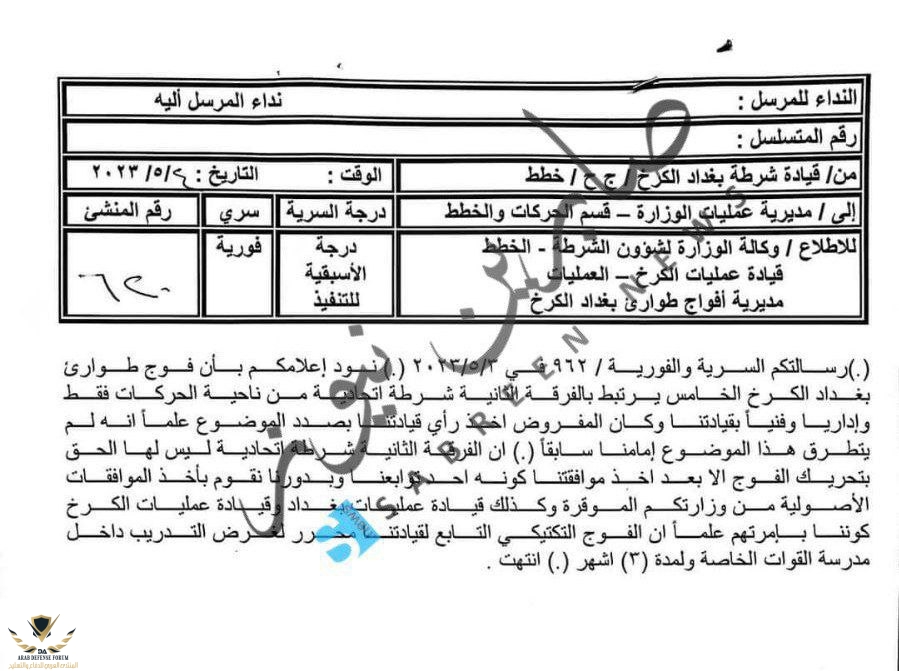 النداء للمرسل : نداء المرسل أليه
رقم المتسلسل :
من/ قيادة شرطة بغداد الكرخ / ج ح / خطط الوقت : التاريخ : ٤/ ٥/ ٢٠٢٣
إلى / مديرية عمليات الوزارة – قسم الحركات والخطط درجة السرية سري رقم المنشئ
للاطلاع / وكالة الوزارة لشؤون الشرطة - الخطط درجة فورية
قيادة عمليات الكرخ – العمليات الأسبقية
مديرية أفواج طوارئ بغداد الكرخ للتنفيذ
(.) رسالتكم السرية والفورية / ٩٦٢ في ٢٠٢٣/٥/٣ (.) نود إعلامكم بأن فوج طوارئ
بغداد الكرخ الخامس يرتبط بالفرقة الثانية شرطة اتحادية من ناحية الحركات فقط
وإداريا وفنياً بقيادتنا وكان المفروض اخذ رأي قيادتنا بصدد الموضوع علماً انه لم
يتطرق هذا الموضوع إمامنا سابقاً (.) ان الفرقة الثانية شرطة اتحادية ليس لها الحق
بتحريك الفوج الا بعد اخذ موافقتنا كونه احد توابعنا وبدورنا نقوم بأخذ الموافقات
الأصولية من وزارتكم الموقرة وكذلك قيادة عمليات بغداد وقيادة عمليات الكرخ
كوننا بإمرتهم علماً ان الفوج التكتيكي التابع لقيادتنا محرر لغرض التدريب داخل
مدرسة القوات الخاصة ولمدة (٣) اشهر (.) انتهت .
صابرين نيوز
SABREEN NEWS
ARAB DEFENSE FORUM
المنتدى العربي للدفاع والتسليح